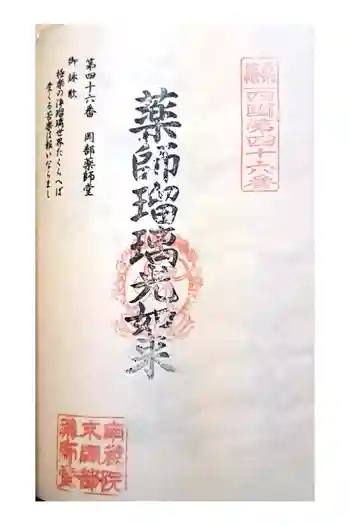 四国第四十六番
薬師瑠璃光如来
第四十六番　岡部薬師堂
御詠歌
極楽の浄瑠璃世界たくらへば
受くる苦楽は報いならまし
南蔵院
末岡部
薬師堂